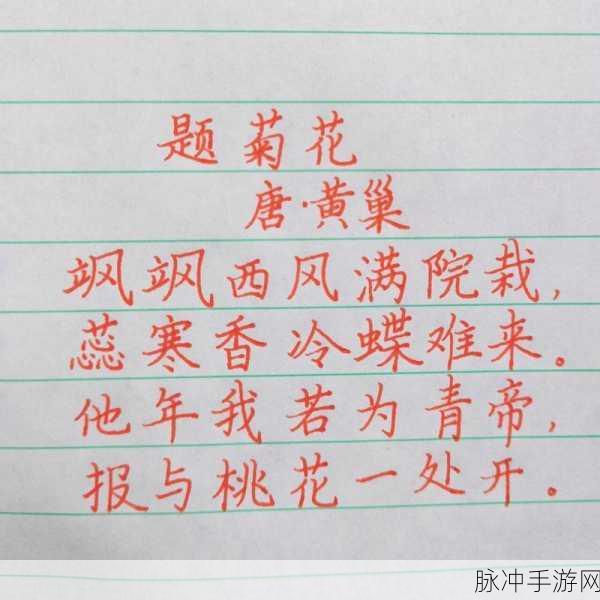 题菊花
唐·黄巢
飒飒西风满院栽,
蕊寒香冷蝶难来。
他年我若为青帝,
报与桃花一处开。
脉冲手游网